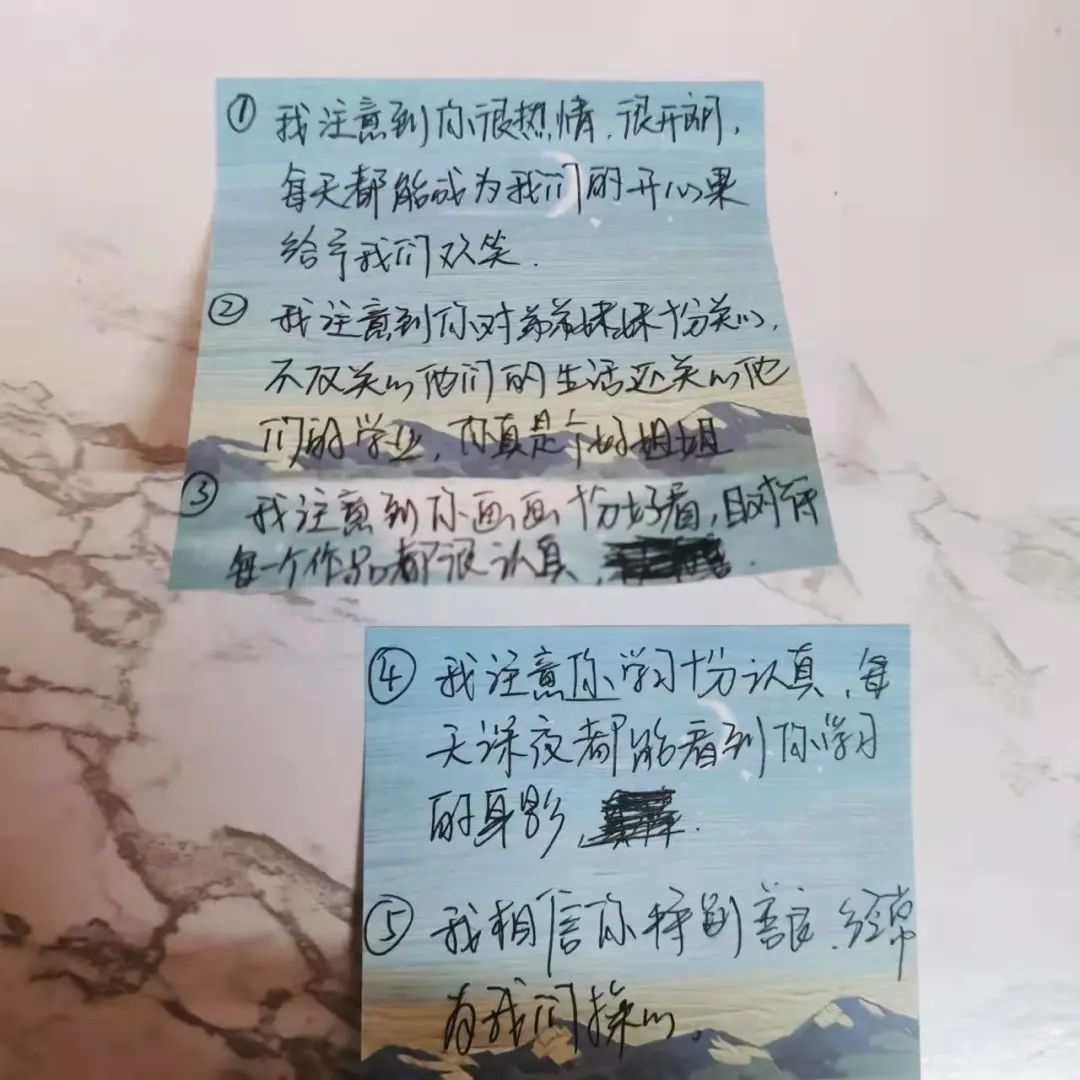 ① 我注意到你很热情，很开朗，
每天都能成为我们的开心果
给予我们欢笑.
② 我注意到你对弟弟妹妹十份关心，
不仅关心他们的生活还关心他
们的学业，你真是个好姐姐
③ 我注意到你画画十份好看，且对待
每一个作品都很认真，
④ 我注意你学习十分认真，每
天深夜都能看到你学习
的身影，
⑤ 我相信你特别善良，经常
为我们操心。